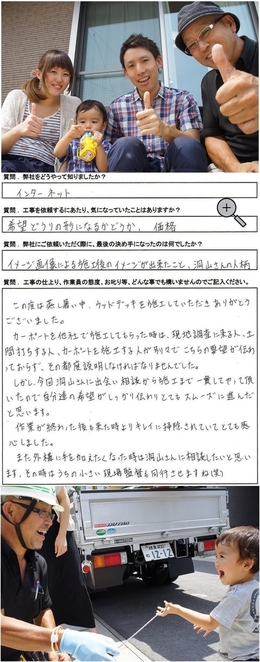 質問．弊社をどうやって知りましたか？
インターネット
質問．工事を依頼するにあたり、気になっていたことはありますか？
希望どうりの形になるかどうか、価格
質問．弊社にご依頼いただく際に、最後の決め手になったのは何でしたか？
イメージ画像による施工後のイメージが出来たこと、洞山さんの人柄
質問．工事の仕上り、作業員の態度、お叱り等、どんな事でも構いませんのでご記入ください。
この度は蒸し暑い中、ウッドデッキを施工していただきありがとう
ございました。
カーポートを他社で施工してもらった時は、現地調査に来る人、土
間打ちする人、カーポートを施工する人が別々でこちらの要望が伝わ
っておらず、その都度説明しなければなりませんでした。
しかし、今回洞山さんに出会い相談から施工まで一貫してやって頂
いたので自分達の希望がしっかり伝わりとてもスムーズに進んだ
と思います。
作業が終わった後も来た時よりキレイに掃除されていてとても感
心しました。
また外構に手を加えたくなった時は洞山さんに相談したいと思い
ます。その時はうちの小さい現場監督も同行させますね(笑)
12-12